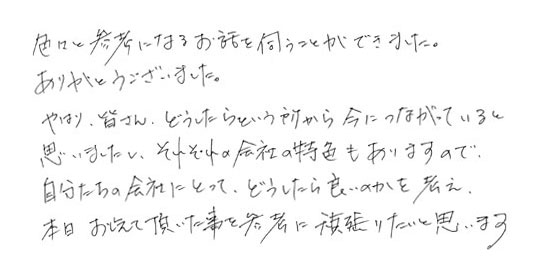 色々と参考になるお話を伺うことができました。
ありがとうございました。
やはり、皆さん、どうしたらという所から今につながっていると
思いましたし、それぞれの会社の特色もありますので、
自分たちの会社にとって、どうしたら良いのかを考え、
本日お伝えて頂いた事を参考に頑張りたいと思います